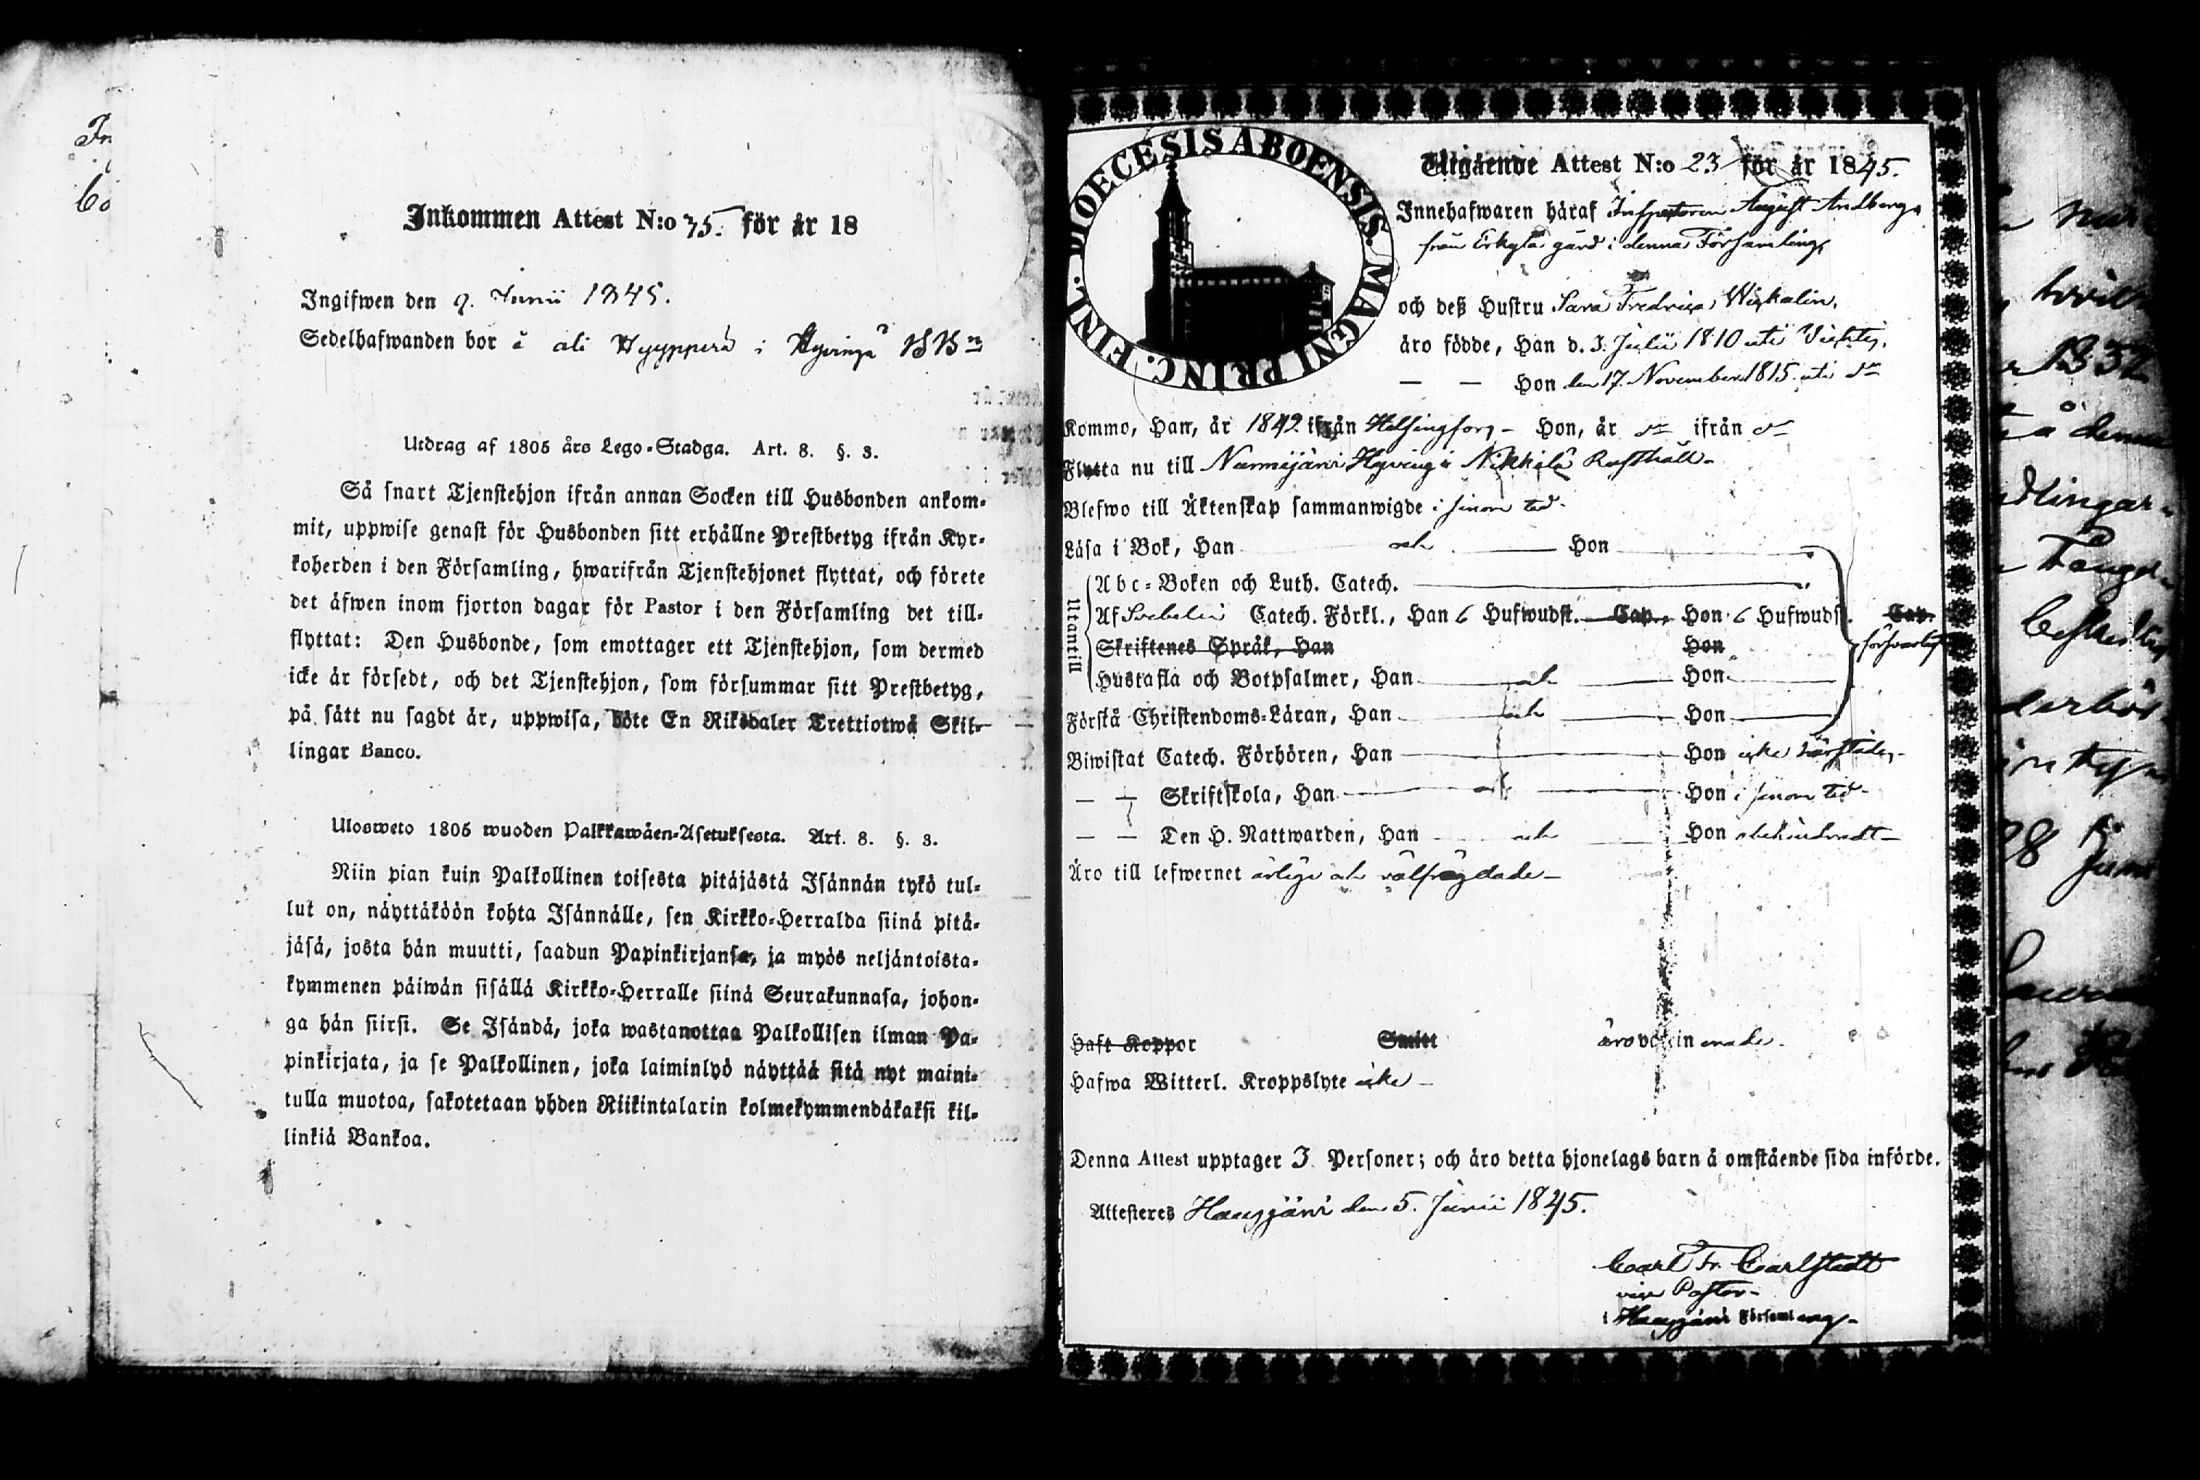 Inkommen Attest N:o 35. för år 18
Ingifwen den 9. Junii 1845.
Sedelhafwanden bor å ali Hyyppärä i Hyvingä
Utdrag af 1805 års Lego-Stadga. Art. 8. §. 3.
Så snart Tjenstehjon ifrån annan Socken till Husbonden ankom-
mit, uppwise genast för Husbonden sitt erhållne Prestbetyg ifrån Kyr-
koherden i den Församling, hwarifrån Tjenstehjonet flyttat, och förete
det äfwen inom fjorton dagar för Pastor i den Församling det till-
flyttat: Den Husbonde, som emottager ett Tjenstehjon, som dermed
icke är försedt, och det Tjenstehjon, som försummar sitt Prestbetyg,
på sätt nu sagdt är, uppwisa, böte En Riksdaler Trettiotwå Skil-
lingar Banco.
Ulosweto 1805 wuoden Palkkawäen-Asetuksesta. Art. 8. §. 3.
Niin pian kuin Palkollinen toisesta pitäjästä Isännän tykö tul-
lut on, näyttäköön kohta Isännälle, sen Kirkko-Herralda siinä pitä-
jäsä, josta hän muutti, saadun Papinkirjansa, ja myös neljäntoista-
kymmenen päiwän sisällä Kirkko-Herralle siinä Seurakunnasa, johon-
ga hän siirsi. Se Isändä, joka wastanottaa Palkollisen ilman Pa-
pinkirjata, ja se Palkollinen, joka laiminlyö näyttää sitä nyt maini-
tulla muotoa, sakotetaan yhden Riikintalarin kolmekymmendäkaksi kil-
linkiä Bankoa.
DIOECESIS ABOENSIS. MAGNI PRINC. FINL.
Utgående Attest N:o 23 för år 1845.
Innehafwaren häraf Inspectoren August Andberg
från Erkylä gård i denna Församling,
och deß Hustru Sara Fredrica Wickalin,
äro födde, Han d. 3 Julii 1810 uti Vichtis,
— — Hon den 17. November 1815 uti dº
Kommo, Han, år 1842 ifrån Helsingfors – Hon, år dº ifrån dº
Flytta nu till Nurmijärvi Hyvingä Nikkilä Rusthåll –
Blefwo till Äktenskap sammanwigde i sinom tid.
Läsa i Bok, Han och Hon
Utantill
Abc-Boken och Luth. Catech.
Af Svebelii Catech. Förkl., Han 6 Hufwudst. Cap., Hon 6 Hufwudst. Cap.
försvarligt
Skriftenes Språk, Han Hon
Hustafla och Botpsalmer, Han och Hon
Förstå Christendoms-Läran, Han och Hon
Biwistat Catech. Förhören, Han Hon icke härstädes –
— — Skriftskola, Han och Hon i sinom tid –
— — Den H. Nattwarden, Han och Hon obehindradt –
Äro till lefwernet ärlige och välfrägdade –
Haft Koppor Smitt äro vaccinerade.
Hafwa Witterl. Kroppslyte icke –
Denna Attest upptager 3 Personer; och äro detta hjonelags barn å omstående sida införde.
Attesteres Hausjärvi den 5. Junii 1845.
Carl Fr. Carlstedt
vice Pastor –
i Hausjärvi Församling –